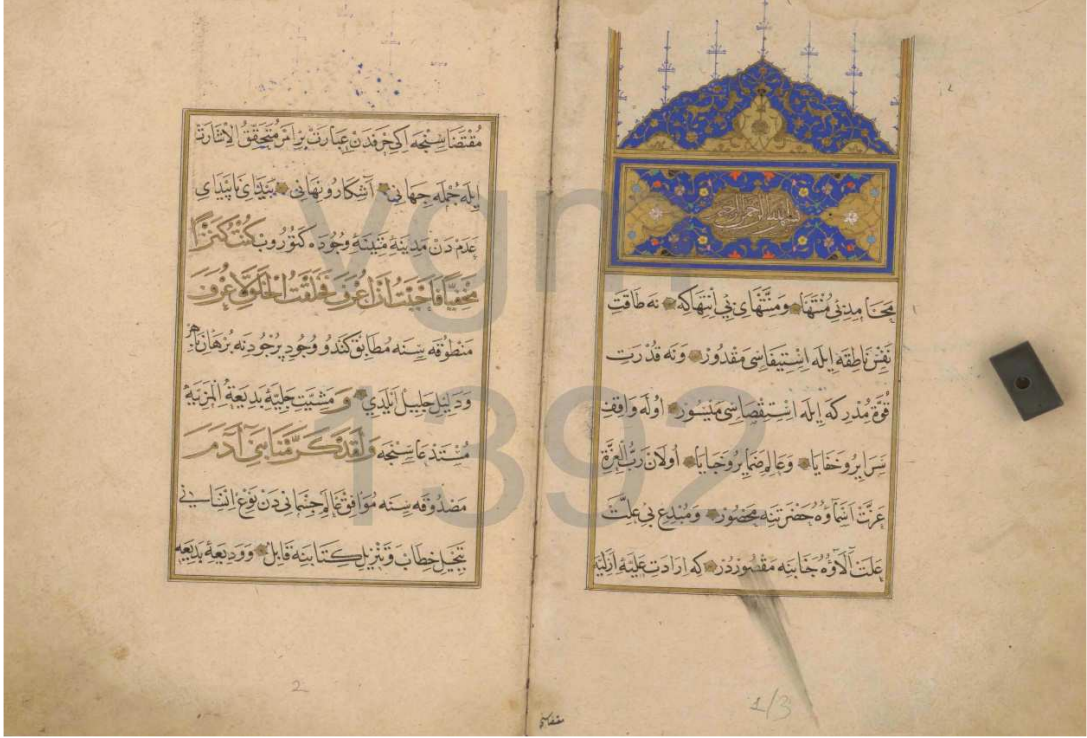 بسم الله الرحمن الرحيم
محامد بى منتها ومنتهاى بى انتهاكه نه طاقت
نفس ناطقه ايله استيفاسى مقدور ونه قدرت
قوة مدركه ايله استقصاسى ميسور اوله واقف
سراير وخفايا وعالم ضماير وخبايا اولان رب العزة
عزت اسماؤه حضرتنه محصور ومبدع بى علت
علت آلاؤه جنابنه مقصوردر كه ارادت عليۀ ازليه
مقتضاسنجه
مقتضاسنجه ايكى حرفدن عبارت بر امر متحقق الاشارت
ايله جمله جهانى آشكار ونهانى پيداى ناپيداى
عدمدن مدينۀ متينۀ وجوده كتوروب كنت كنزا
مخفيا فاحببت ان اعرف فخلقت الخلق لاعرف
منطوقه سنه مطابق كندو وجود پرجودنه برهان باهر
ودليل جليل ايلدى ومشيت جليۀ بديعة المزيۀ
مستدعاسنجه ولقد كرمنا بنى آدم
مصدوقه سنه موافق عالم جسمانيدن نوع انسانى
تبجيل خطاب وتنزيل كتابنه قابل ووديعۀ بديعۀ
2
1/3
vgm
1392